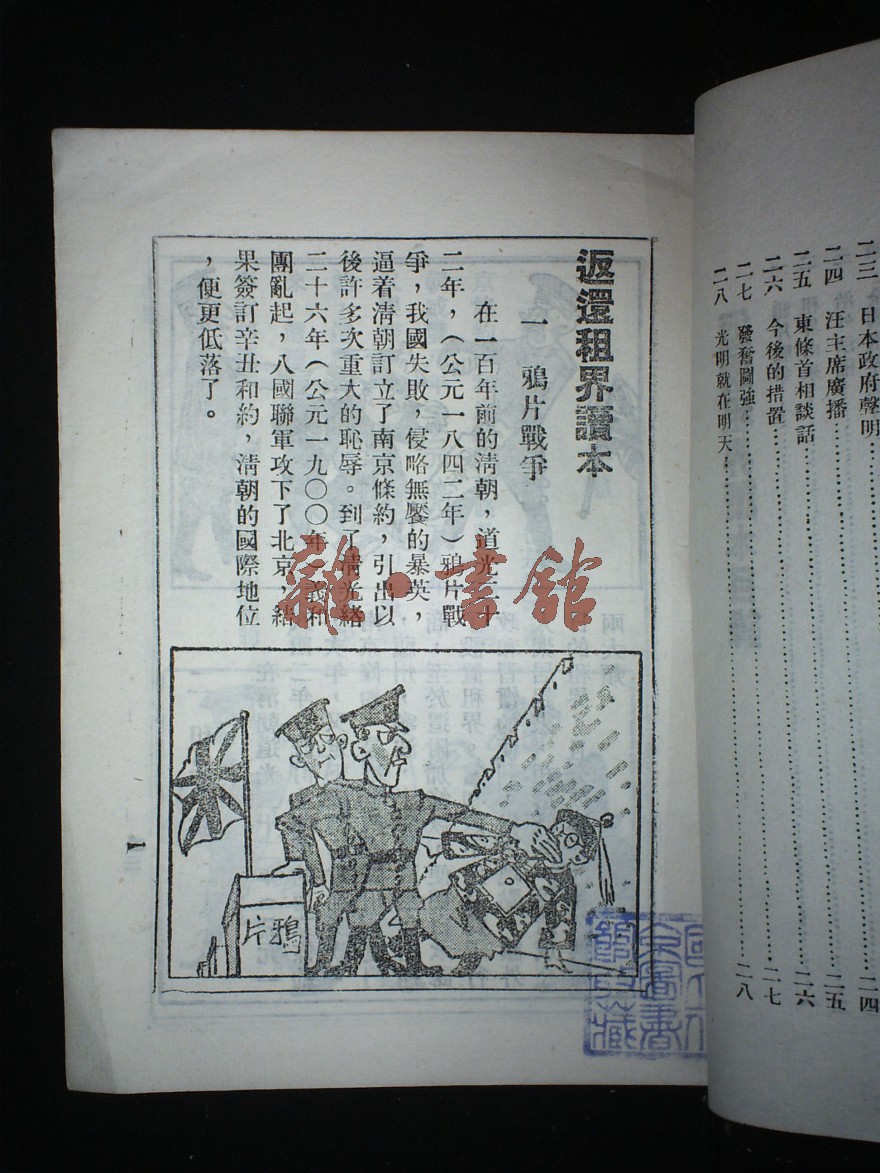 返還租界讀本
一 鴉片戰爭
在一百年前的淸朝，道光二十
二年，（公元一八四二年）鴉片戰
爭，我國失敗，侵略無饜的暴英，
逼着淸朝訂立了南京條約，引出以
後許多次重大的恥辱。到了淸光緒
二十六年（公元一九〇〇年）義和
團亂起，八國聯軍攻下了北京，結
果簽訂辛丑和約，淸朝的國際地位
，便更低落了。
鴉片
1
二三 日本政府聲明
二四 汪主席廣播……二四
二五 東條首相談話……二五
二六 今後的措置……二六
二七 發奮圖強……二七
二八 光明就在明天……二八
雜·書館